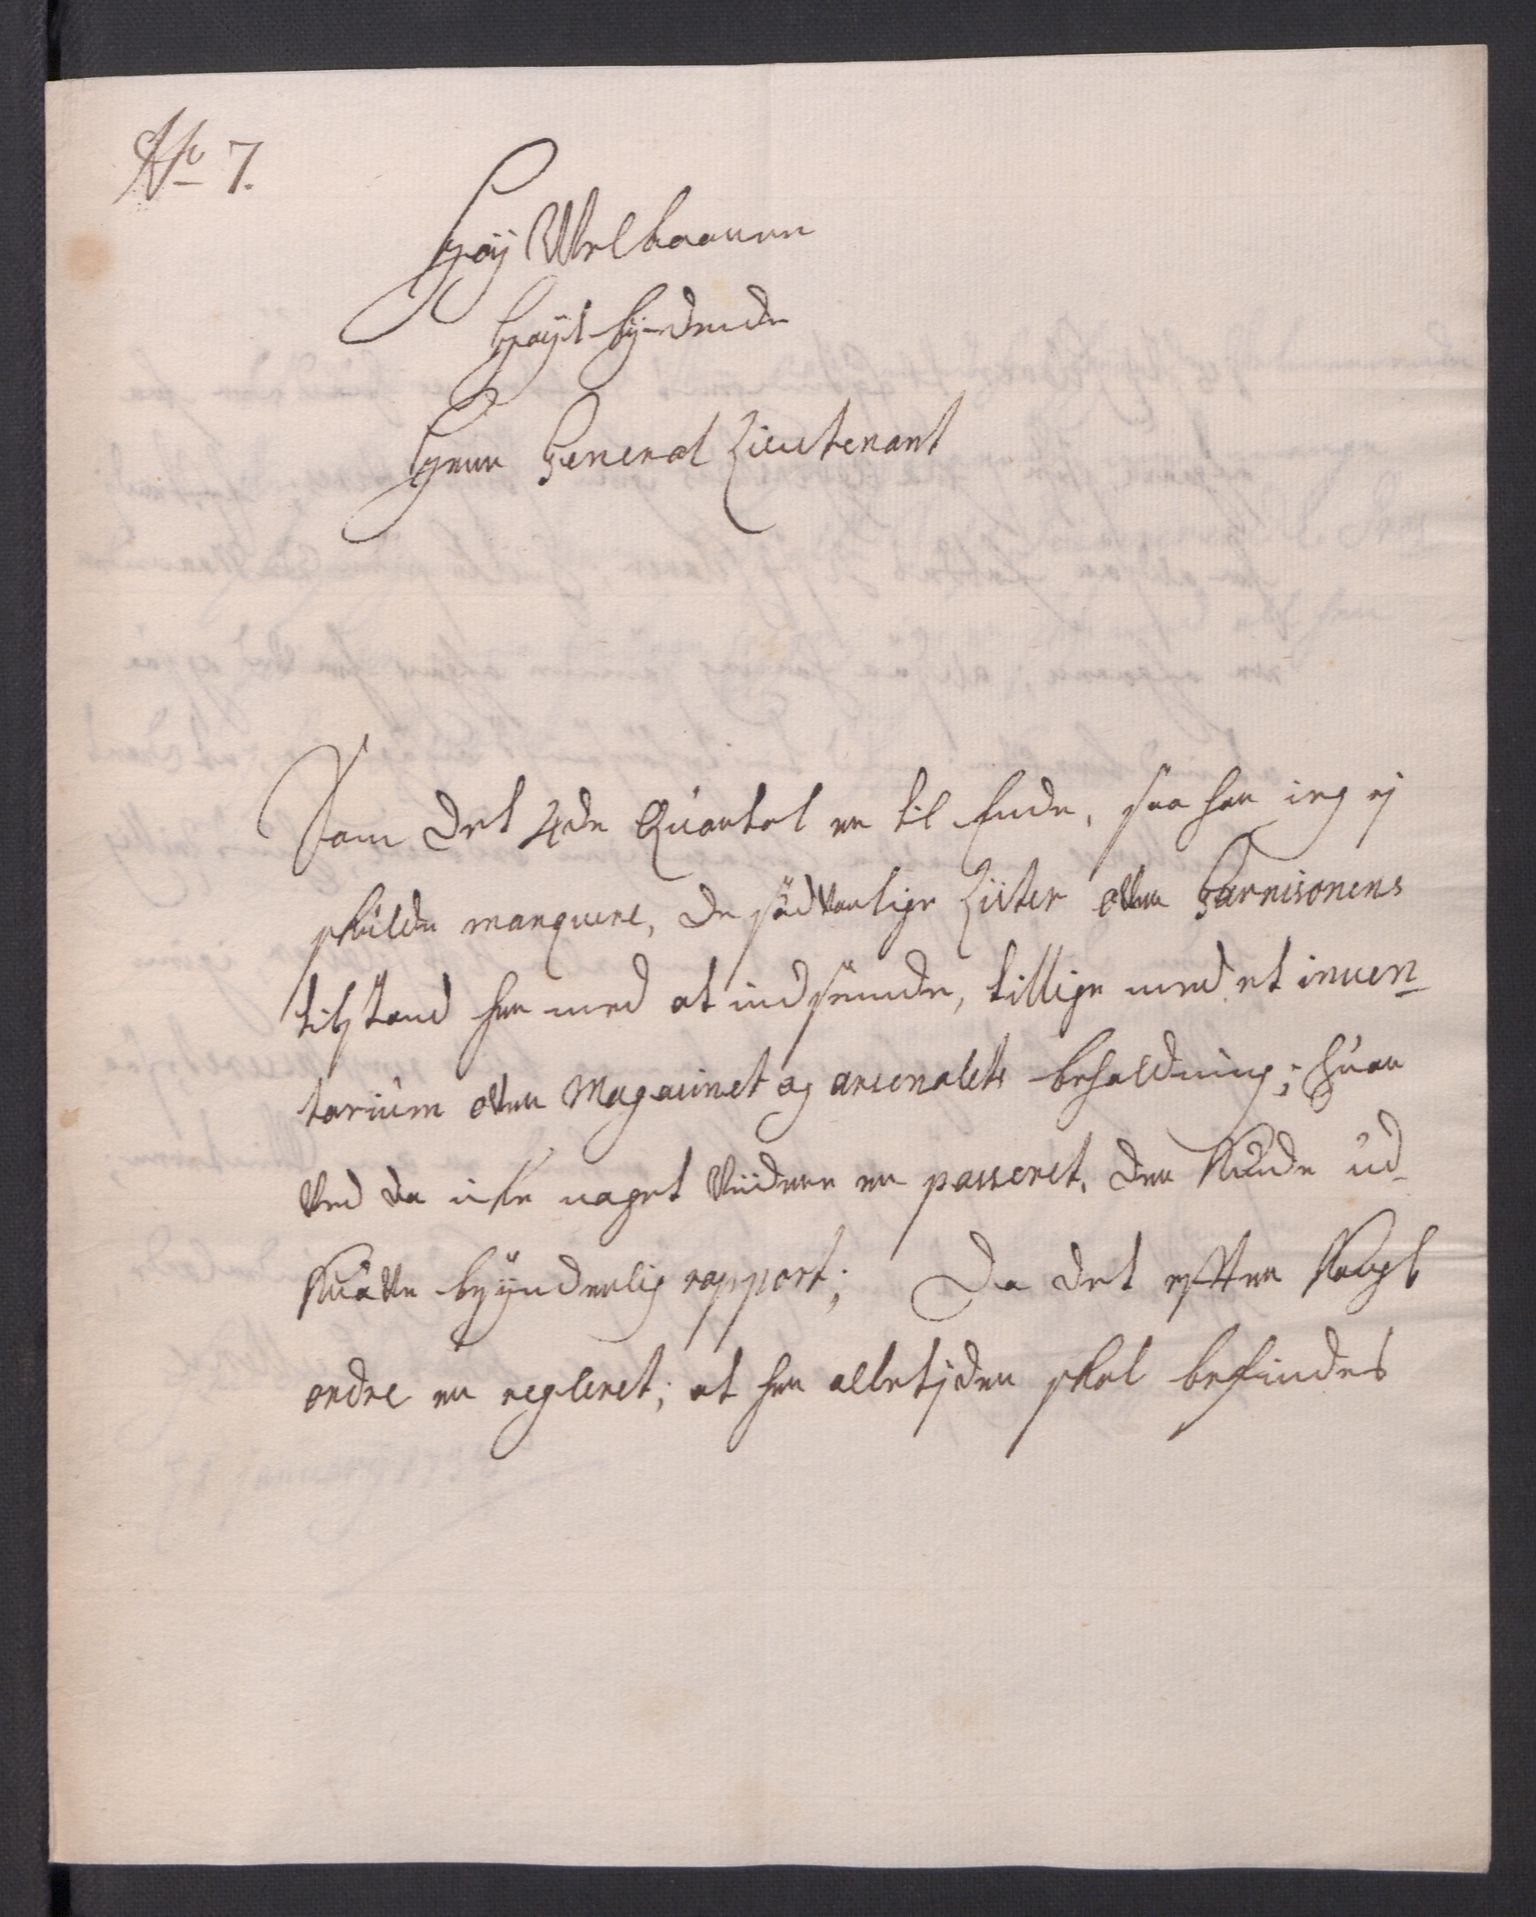 No 7.
Høy Welbaarne
Høyt bÿdende
Herr General Lieutenant
Som det 4de Quartal er til Ende, saa har ieg ej
skulde manquere, de sædvanlige Lister over Garnisonens
tilstand her med at indsende, tillige med et inven-
tarium over Magasinet og arsenalets beholdning; hvor
ved da icke noget viidere er passeret, der kunde ud-
kræve synderlig rapport; Da det efter Kongl
ordre er regleret; at her alletjder skal befindes